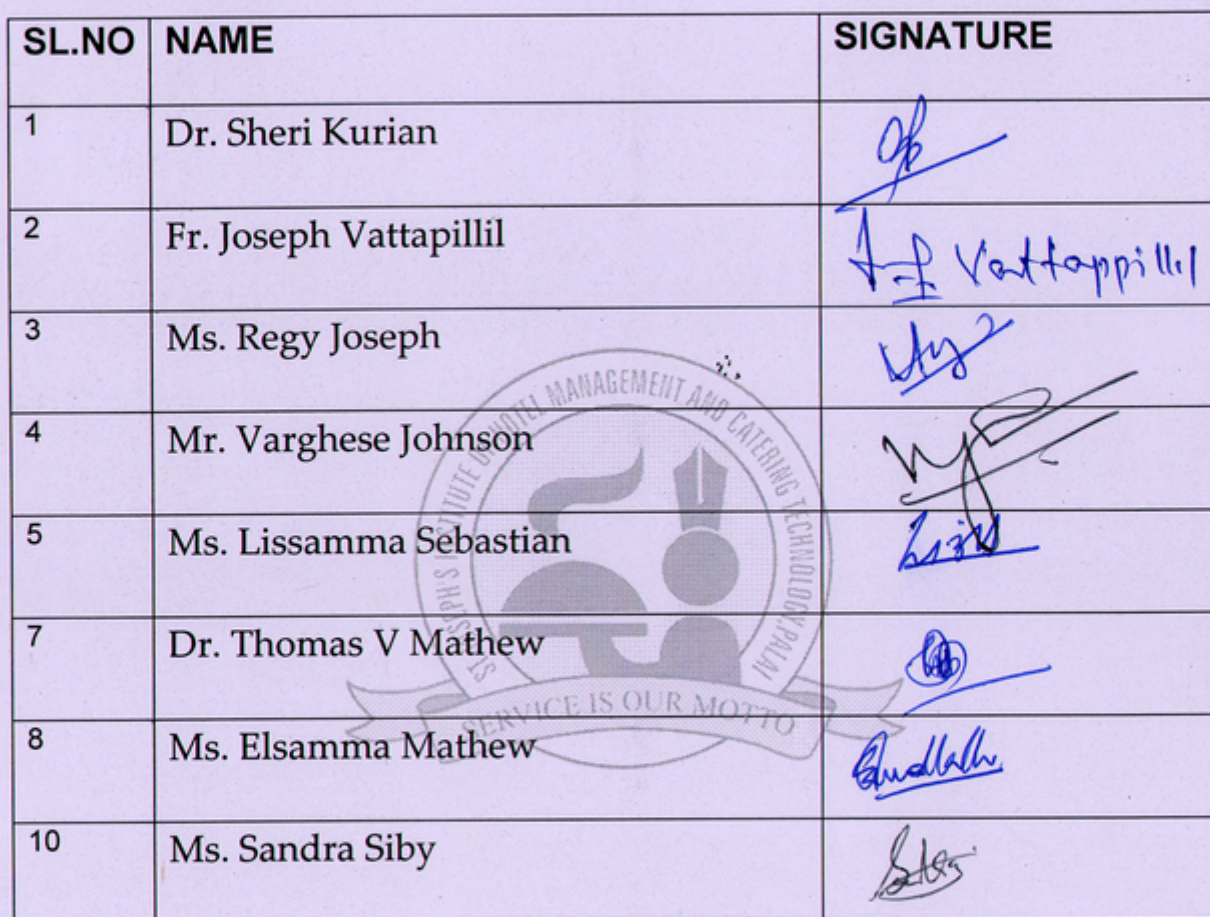 SL.NO NAME SIGNATURE
1 Dr. Sheri Kurian
2 Fr. Joseph Vattapillil Vattappillil
3 Ms. Regy Joseph
4 Mr. Varghese Johnson
5 Ms. Lissamma Sebastian
7 Dr. Thomas V Mathew
8 Ms. Elsamma Mathew
10 Ms. Sandra Siby
ST. JOSEPH'S INSTITUTE OF HOTEL MANAGEMENT AND CATERING TECHNOLOGY, PALAI
SERVICE IS OUR MOTTO